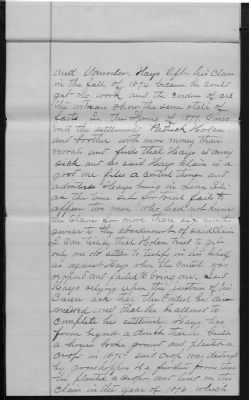 and Vanrolen Hays left his Claim
in the fall of 1876 because he could
get no work and the evidence of all
the witnesses show the same state of
facts. In the Spring of 1877 Comes
into the settlement Patrick Horan
and brother with more money than
morals and finds that Hays is away
sick and as said Hays Claim is a
good one files a contest thereon and
advertises Hays being in
at the time but
two men who
the Claim for more than six months
previous to the abandonment of said Claim
I am sure that Horan tried to get
only one to testify in his behalf
as against Hays when the Contest was
and failed to bring one. Said
Hays relying upon the justice of his
Cause asks that the Contest be dis-
missed and that he be allowed to
complete his settlement. Hays has
proven beyond a doubt that he built
a house broke ground and planted a
crop in 1875 said crop was destroyed
by grasshoppers he further proves that
he planted a crop and lived on the
Claim in the year of 1876 which